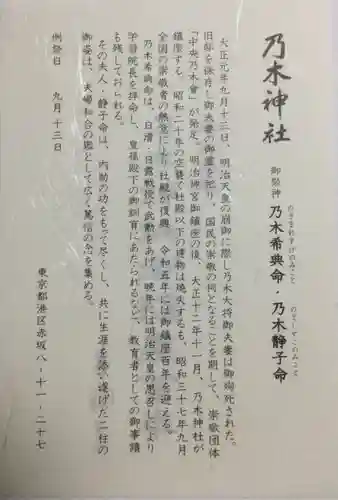 乃木神社
御祭神 乃木希典命・乃木静子命
のぎまれすけのみこと
のぎしずこのみこと
大正元年九月十三日、明治天皇の崩御に際し乃木大将御夫妻は御殉死された。
旧邸を保存し御夫妻の御霊を祀り、国民の崇敬の的となることを期して、崇敬団体
「中央乃木會」が発足。明治神宮御鎮座の後、大正十二年十一月、乃木神社が
鎮座する。昭和二十年の空襲で社殿以下の建物は焼失するも、昭和三十七年九月
全国の崇敬者の熱意により社殿が復興、令和五年には御鎮座百年を迎える。
乃木希典命は、日清・日露戦役で武勲をあげ、晩年には明治天皇の思召しにより
学習院長を拝命し、皇孫殿下の御訓育にあたられるなど、教育者としての御事蹟
も残しておられる。
その夫人・静子命は、内助の功をもって尽くし、共に生涯を添い遂げた二柱の
御姿は、夫婦和合の鑑として広く篤信の念を集める。
例祭日 九月十三日
東京都港区赤坂八-十一-二十七